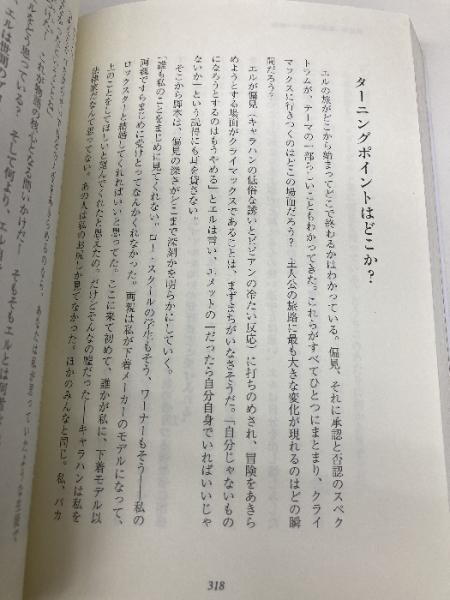 ターニングポイントはどこか?
エルの旅がどこから始まってどこで終わるかはわかっている。偏見、それに承認と否認のスペク
トラムが、テーマの一部らしいこともわかってきた。これらがすべてひとつにまとまり、クライ
マックスに行きつくのはどの場面だろう? 主人公の旅路に最も大きな変化が現れるのはどの瞬
間だろう?
エルが偏見(キャラハンの低俗な誘いとビビアンの冷たい反応)に打ちのめされ、冒険をあきら
めようとする場面がクライマックスであることは、まずまちがいなさそうだ。「自分じゃないもの
になろうとするのはもうやめる」とエルは言い、エメットの「だったら自分自身でいればいいじゃ
ないか」という説得にも耳を貸さない。
そこから脚本は、偏見の深さがどこまで深刻かを明らかにしていく。
「誰も私のことをまじめに見てくれない。ロー・スクールの学生もそう、ワーナーもそう――私の
両親ですらまじめに受けとってなんかくれなかった。両親は私が下着メーカーのモデルになって、
ロックスターと結婚してくれればいいと思ってた。ここに来て初めて、誰かが私に、下着モデル以
上のことをしてほしいと望んでくれたと思えたの。だけどそんなの嘘だった――キャラハンは私を
法律家だなんて思ってない。あの人は私のお尻しか見てなかった。ほかのみんなと同じ。私、バカ
318